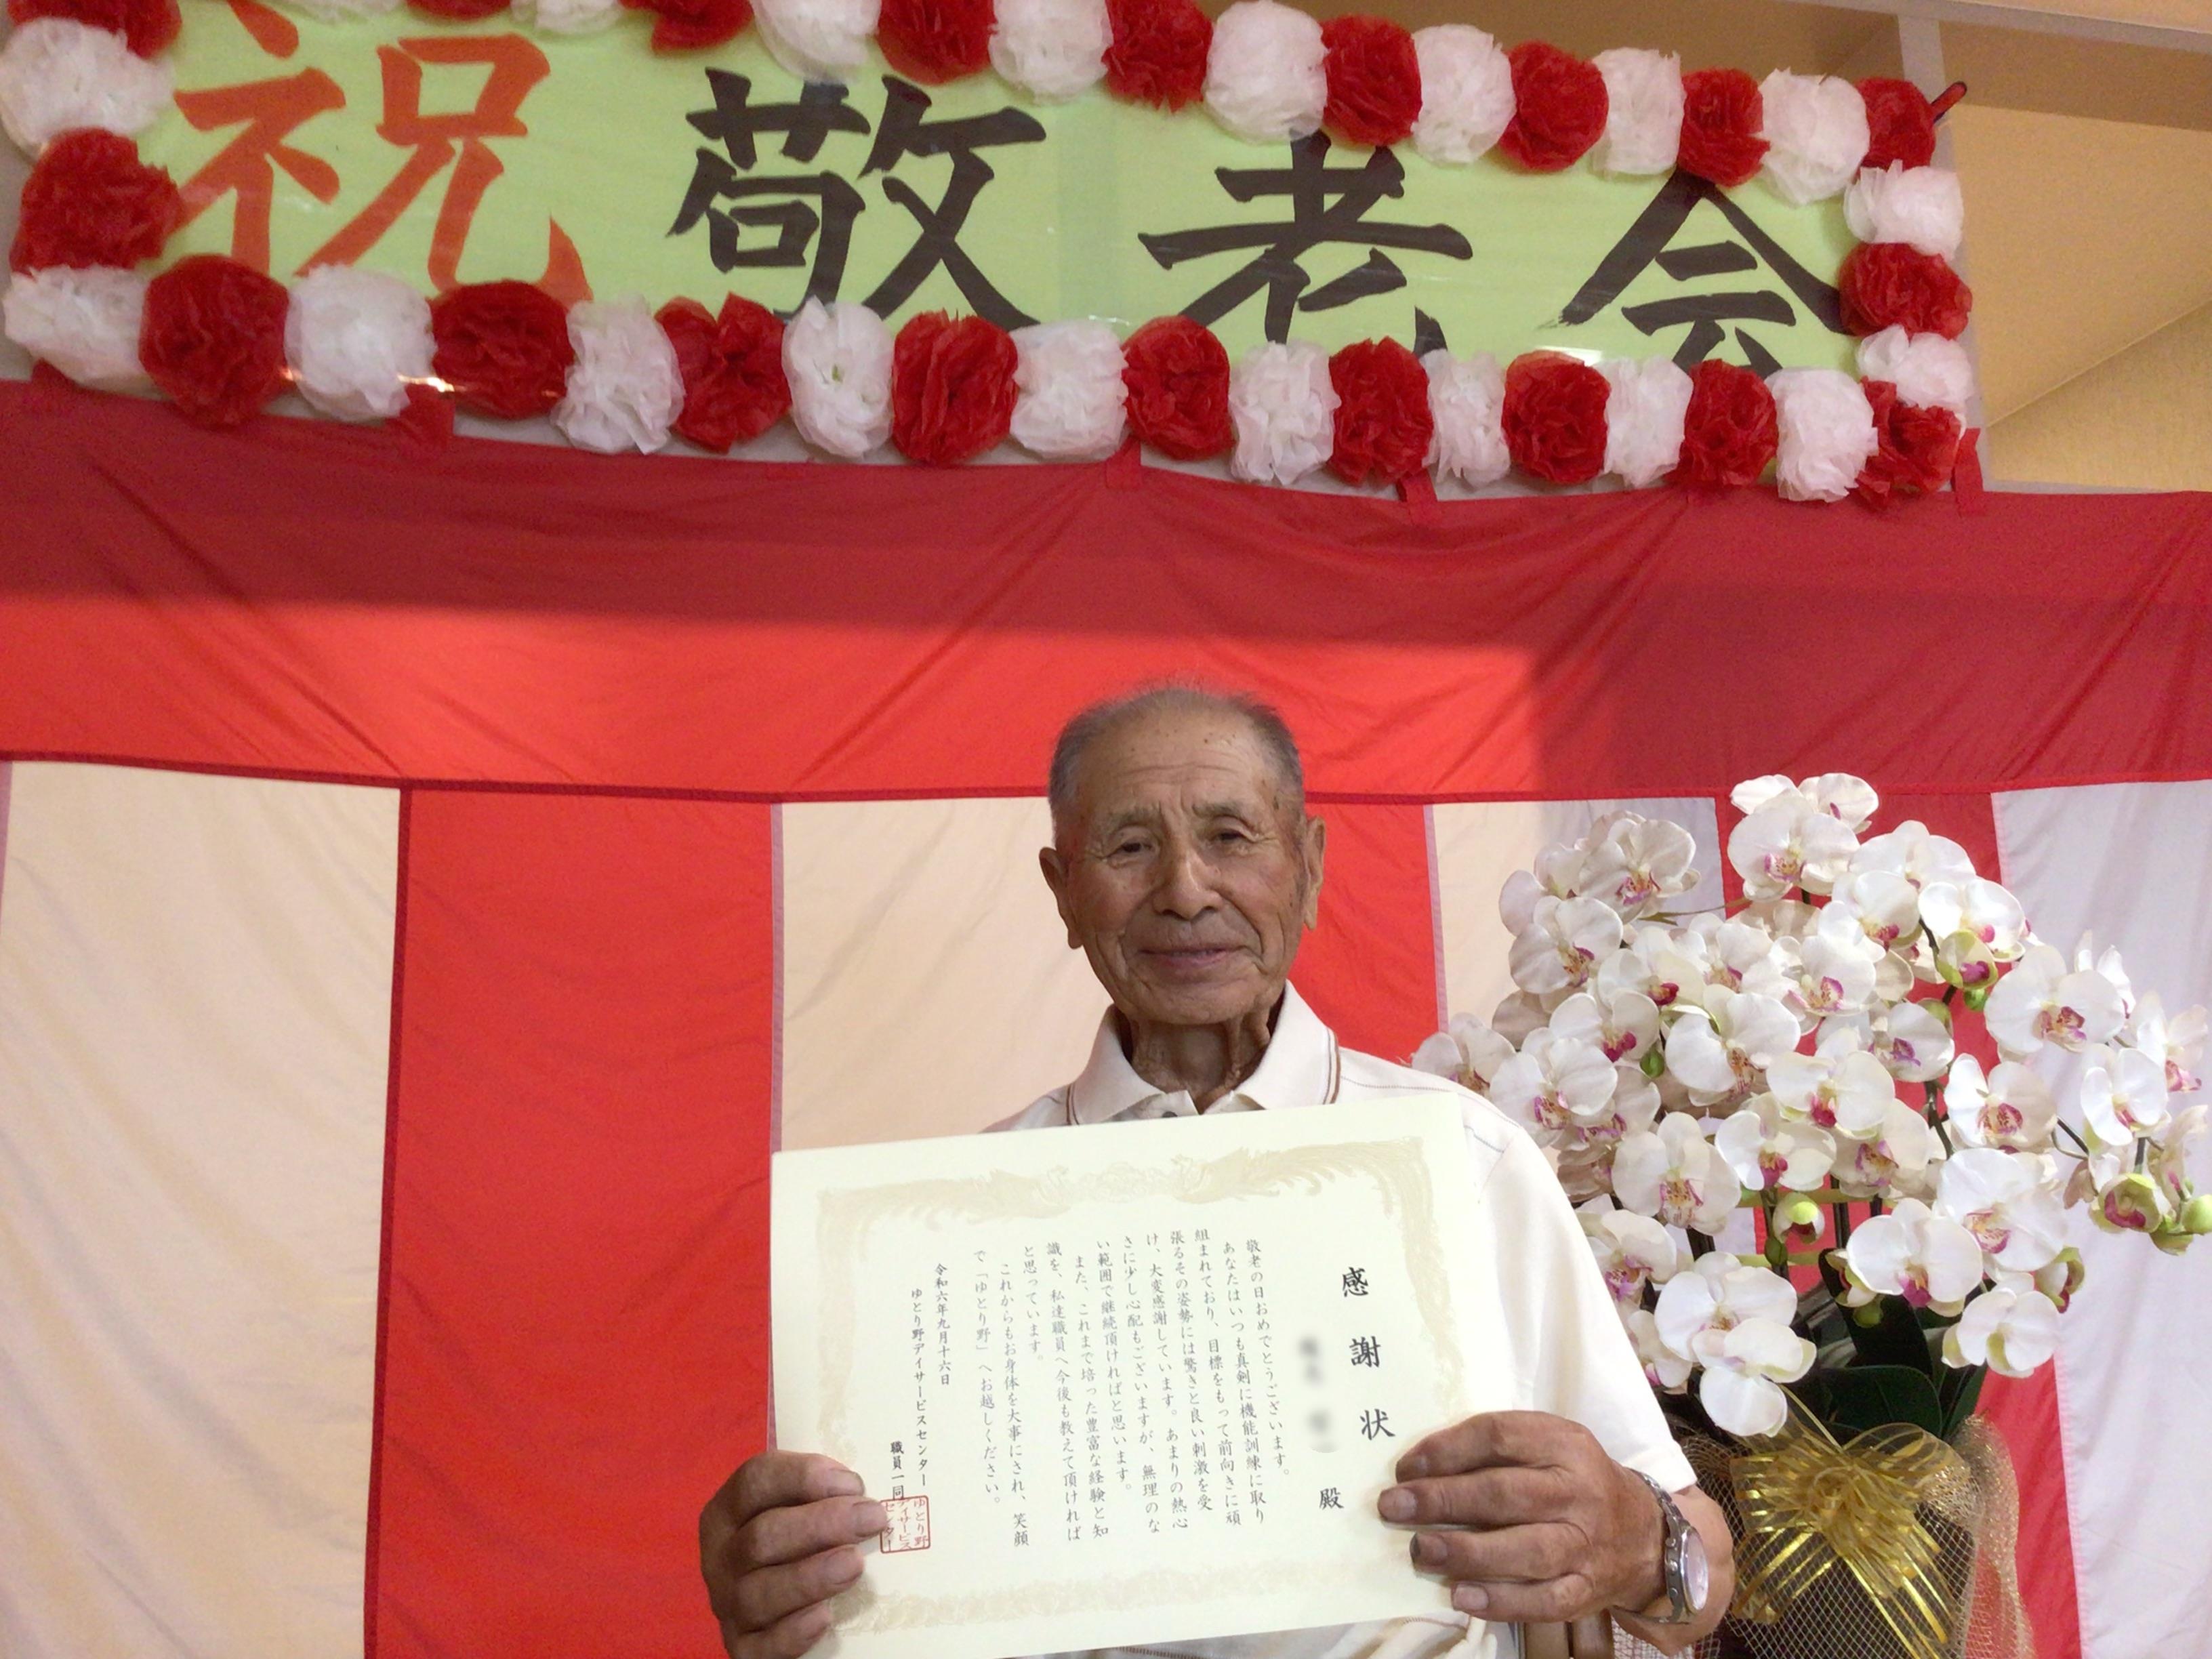 祝 敬老会
感謝状
殿
敬老の日おめでとうございます。
あなたはいつも真剣に機能訓練に取り
組まれており、目標をもって前向きに頑
張るその姿勢には驚きと良い刺激を受
け、大変感謝しています。あまりの熱心
さに少し心配もございますが、無理のな
い範囲で継続頂ければと思います。
また、これまで培った豊富な経験と知
識を、私達職員へ今後も教えて頂ければ
と思っています。
これからもお身体を大事にされ、笑顔
で「ゆとり野」へお越しください。
令和六年九月十六日
ゆとり野デイサービスセンター
職員一同
ゆとり野
デイサービス
センター